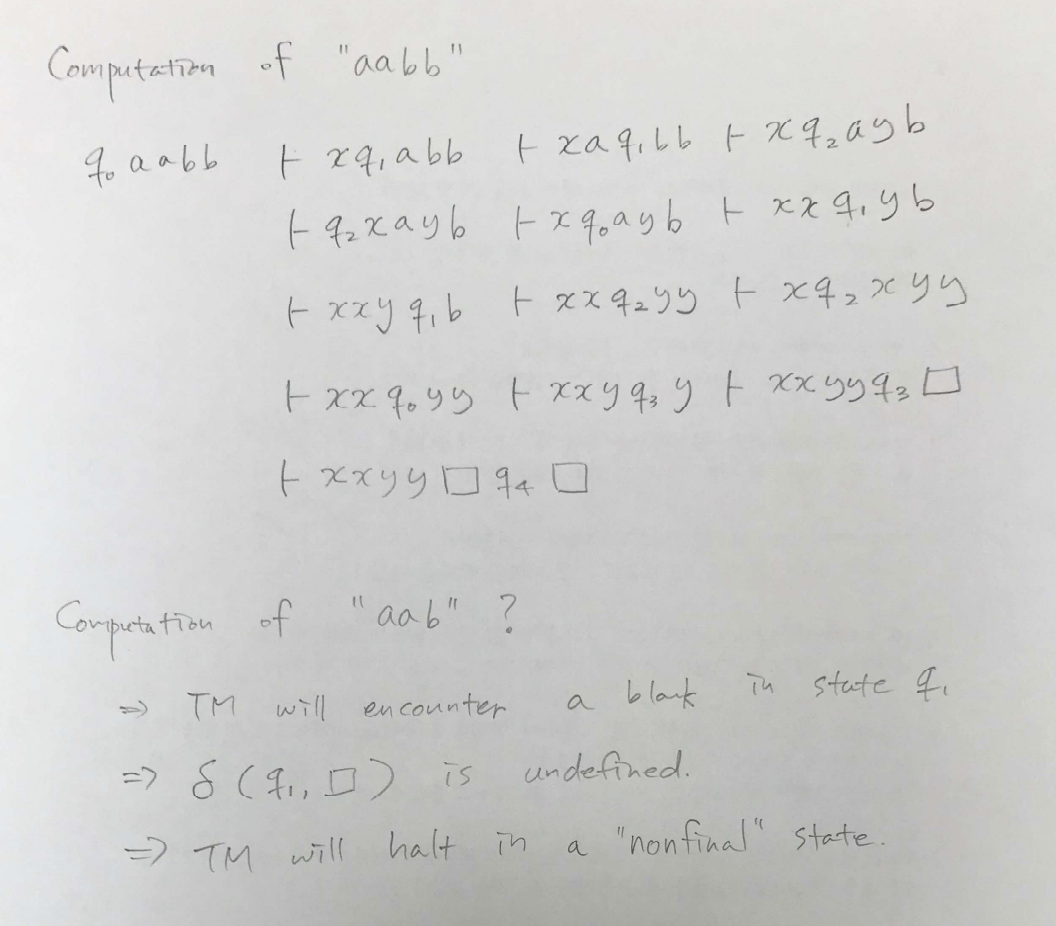 Computation of "aabb"
q₀aabb ⊢ xq₁abb ⊢ xaq₁bb ⊢ xq₂ayb
⊢ q₂xayb ⊢ xq₀ayb ⊢ xxq₁yb
⊢ xxyq₁b ⊢ xxq₂yy ⊢ xq₂xyy
⊢ xxq₀yy ⊢ xxyq₃y ⊢ xxyyq₃□
⊢ xxyy□q₄□
Computation of "aab" ?
⇒ TM will encounter a blank in state q₁
⇒ δ(q₁, □) is undefined.
⇒ TM will halt in a "nonfinal" state.